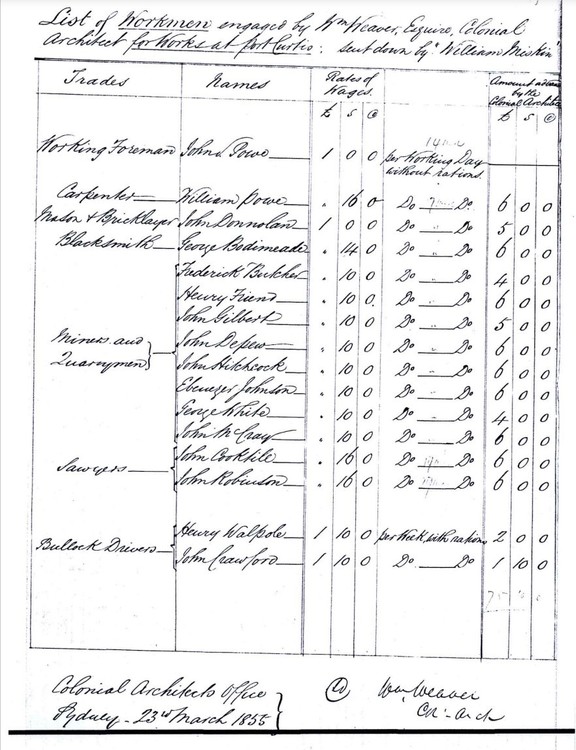 List of Workmen engaged by Wm Weaver, Esquire, Colonial
Architect for Works at Port Curtis: sent down by "William Miskin"
Trades Names Rates of Wages. Amount by the Colonial Architect
£ s d £ s d
Working Foreman John Powe 1 0 0 per Working Day without rations.
Carpenter William Powe " 16 0 Do Do 6 0 0
Mason & Bricklayer John Donnolan 1 0 0 Do " Do 5 0 0
Blacksmith George Bodimeade " 14 0 Do " Do 6 0 0
Frederick Butcher " 10 0 Do " Do 4 0 0
Henry Friend " 10 0 Do " Do 6 0 0
John Gilbert " 10 0 Do " Do 5 0 0
Miners and Quarrymen John Depew " 10 0 Do " Do 6 0 0
John Hitchcock " 10 0 Do " Do 6 0 0
Ebenezer Johnson " 10 0 Do " Do 6 0 0
George White " 10 0 Do " Do 4 0 0
John McCray " 10 0 Do " Do 6 0 0
Sawyers John Cooktile " 16 0 Do Do 6 0 0
John Robinson " 16 0 Do Do 6 0 0
Bullock Drivers Henry Walpole 1 10 0 per Week, with rations 2 0 0
John Crawford 1 10 0 Do Do 1 10 0
Colonial Architects Office
Sydney - 23rd March 1855
Wm Weaver
Cl: Arch